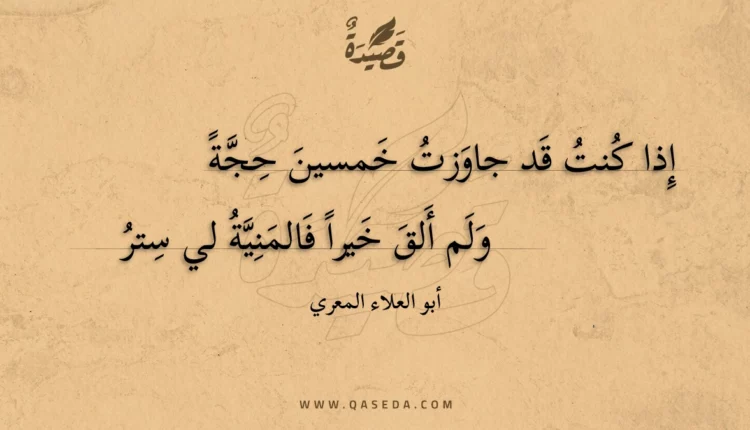 قَصِيدَةٌ
إِذا كُنتُ قَد جاوَزتُ خَمسينَ حِجَّةً
وَلَم أَلقَ خَيراً فَالمَنِيَّةُ لي سِترُ
أبو العلاء المعري
WWW.QASEDA.COM